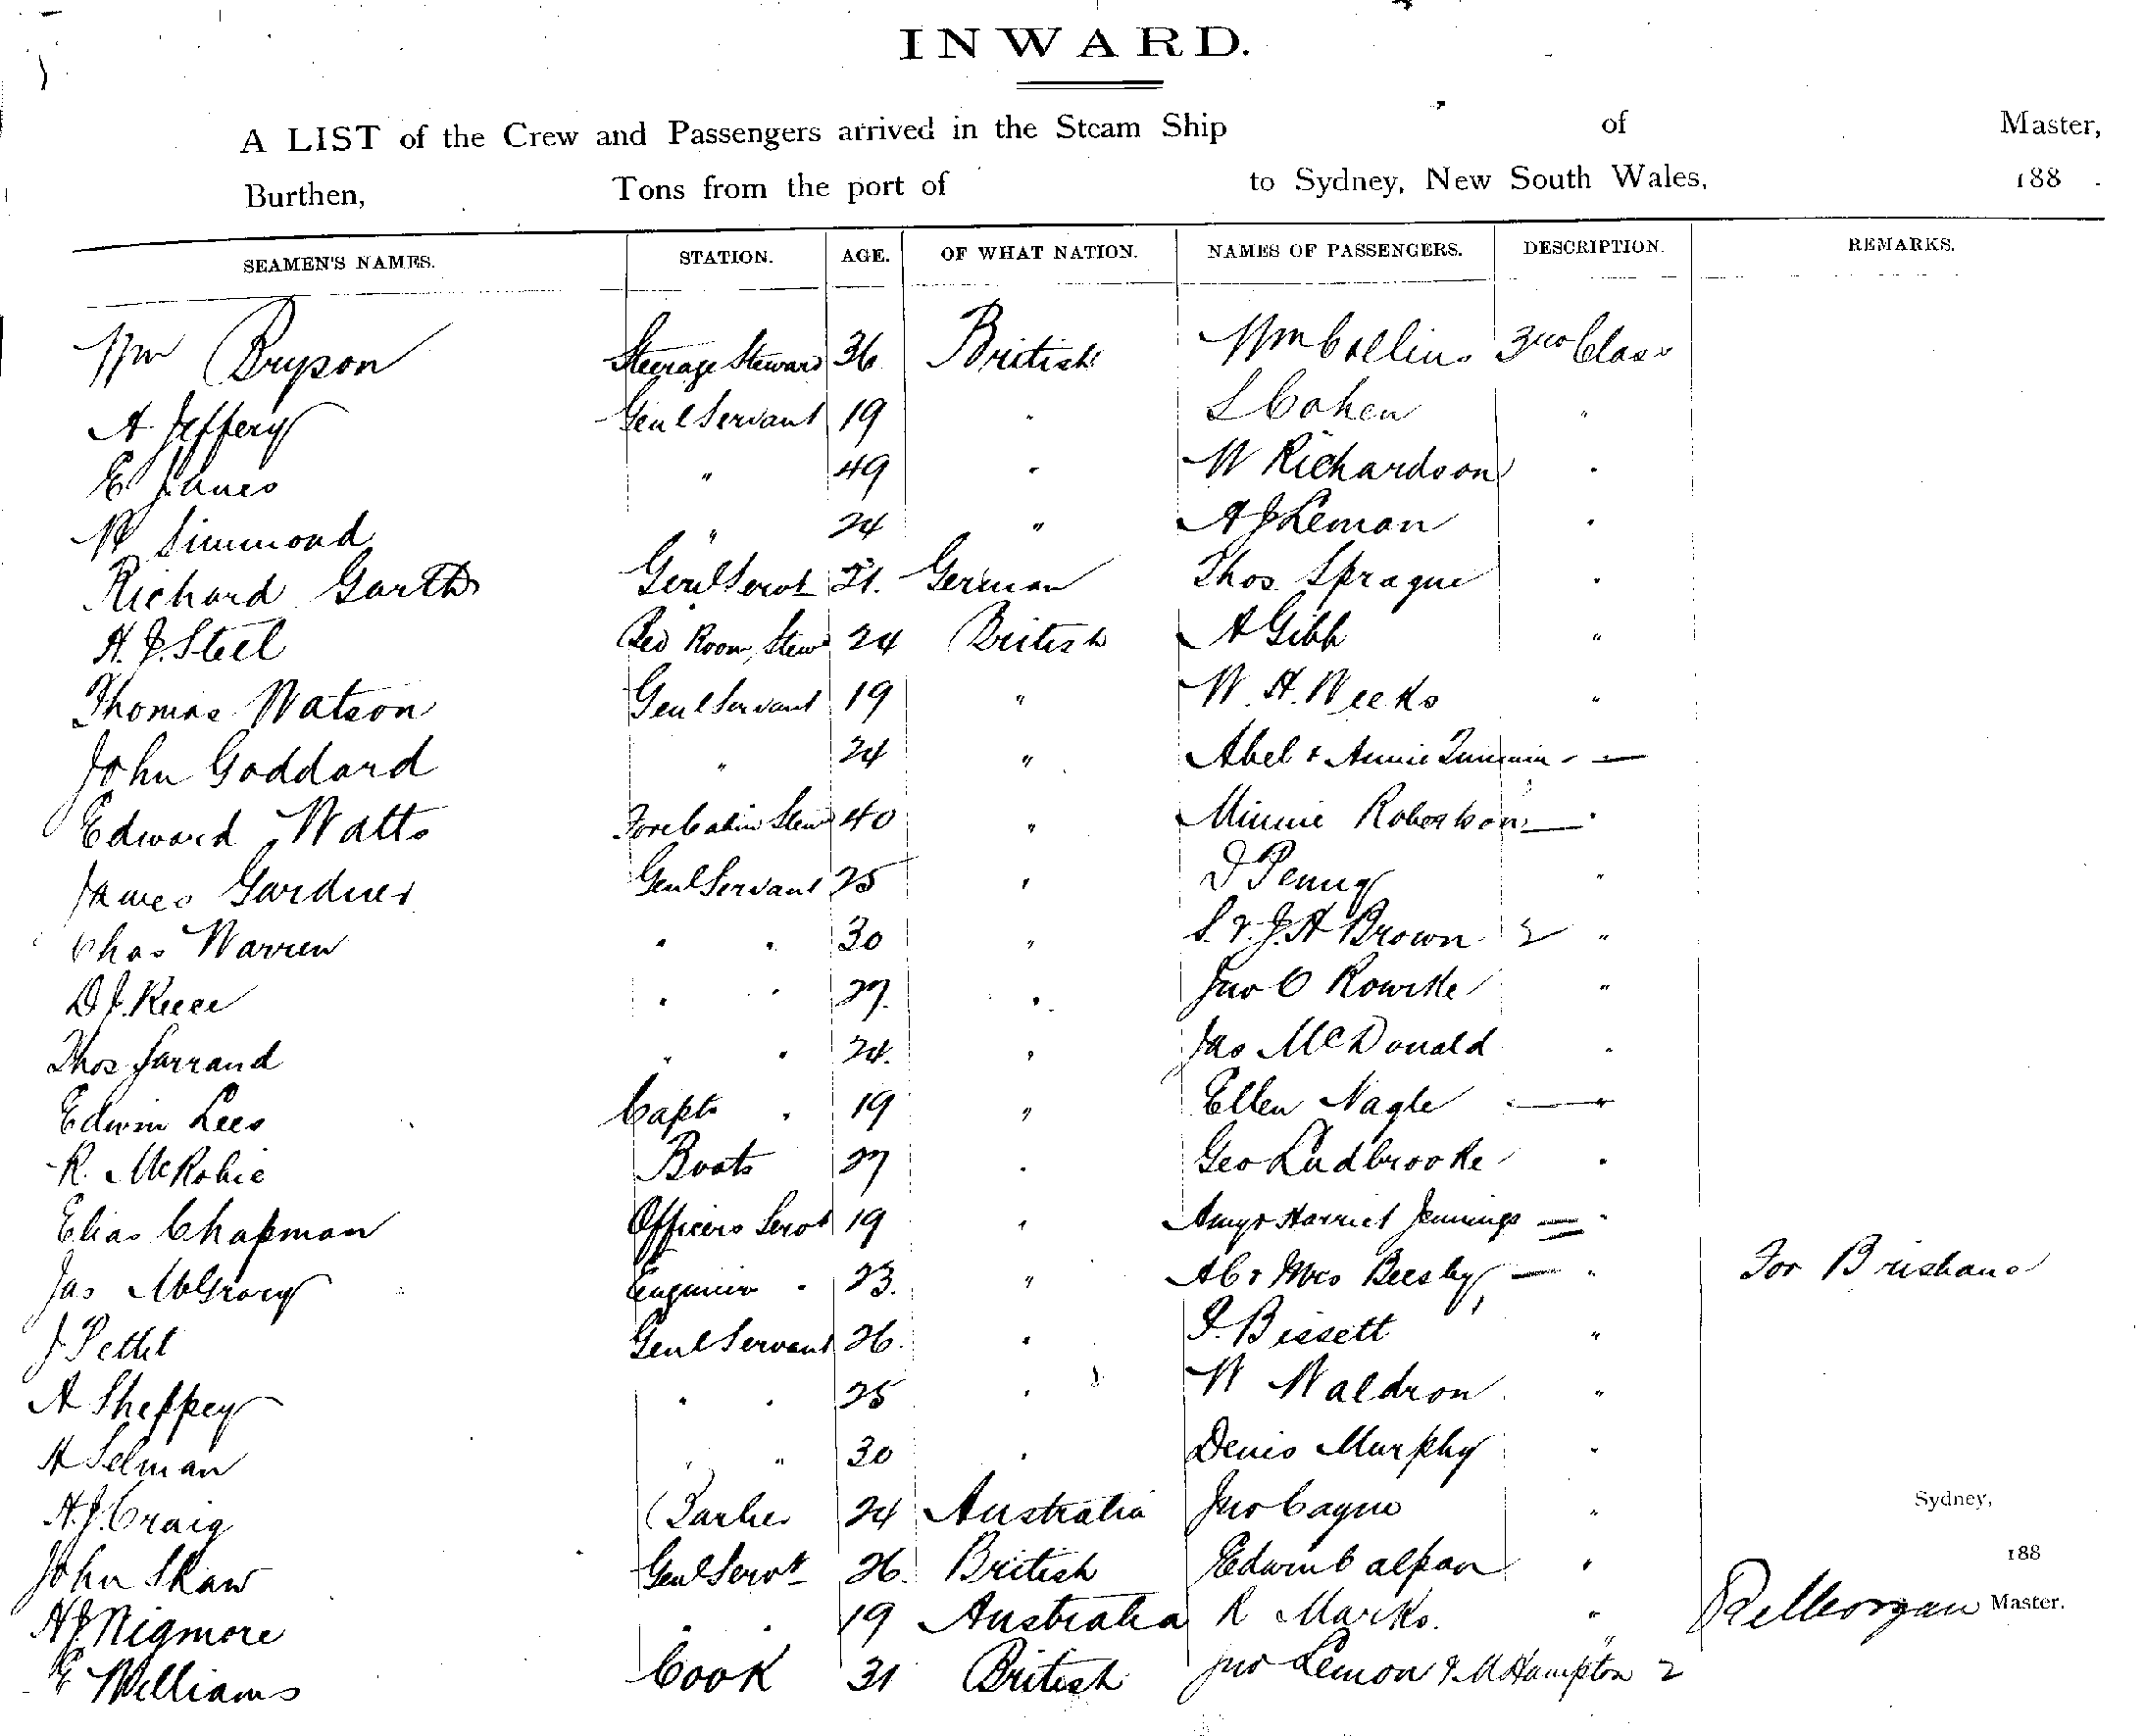 INWARD.
A LIST of the Crew and Passengers arrived in the Steam Ship of Master,
Burthen, Tons from the port of to Sydney, New South Wales, 188 .
SEAMEN'S NAMES. STATION. AGE. OF WHAT NATION. NAMES OF PASSENGERS. DESCRIPTION. REMARKS.
Wm Bryson Steerage Steward 36 British Wm Collins 3rd Class
A Jeffery Genl Servant 19 " L Cohen "
E Janes " 49 " W Richardson "
W Simmond " 24 " A J Leman "
Richard Garth Genl Servt 21. German Thos Sprague "
H. J. Steel Bed Room Stewd 24 British A Gibb "
Thomas Watson Genl Servant 19 " W. H. Weeks "
John Goddard " 24 " Abel & Annie —
Edward Watts Fore Cabin Stewd 40 " Minnie Robertson — "
James Gardner Genl Servant 25 " Penny "
Chas Warren " " 30 " S. & J. H Brown 2 "
D J. Reece " " 27. " Jno O Rourke "
Thos Farrand " " 24. " Jas McDonald "
Edwin Lees Capts " 19 " Ellen Nagle — "
R. McRobie Boats 27 " Geo Ludbrooke "
Elias Chapman Officers Servt 19 " Amy & Harriet Jennings = "
Jas McGrory Engineers " 23. " A C & Mrs Beesley — " For Brisbane
J Pettet Genl Servant 26. " Bissett "
A Sheppey " " 25 " W Waldron "
A Selman " " 30 " Denis Murphy "
H. J. Craig Barber 24 Australia Jno Cagne "
Sydney,
John Shaw Genl Servt 26. British Edwin "
188
H J. Wigmore " " 19 Australia R Marks. "
Morgan Master.
E Williams Cook 31 British Jno Lemon & M Hampton 2 "